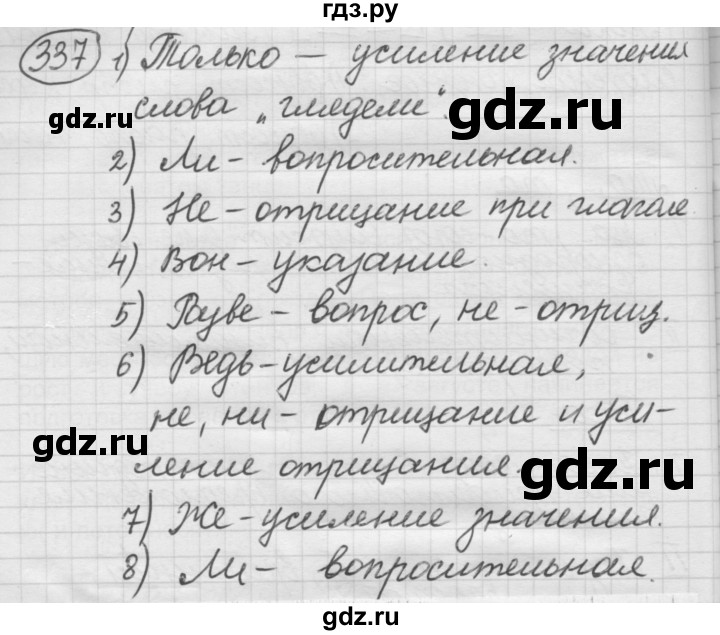 гдз.ру
337 1) Только — усиление значения
слова „глядели".
gdz.ru
2) Ли - вопросительная.
3) Не - отрицание при глаголе
4) Вон - указание.
5) Разве - вопрос, не - отриц.
6) Ведь - усилительная,
не, ни - отрицание и уси-
gdz.ru
ление отрицания.
gdz.ru
7) Же - усиление значения.
8) Ли - вопросительная.
gdz.ru
gdz.ru